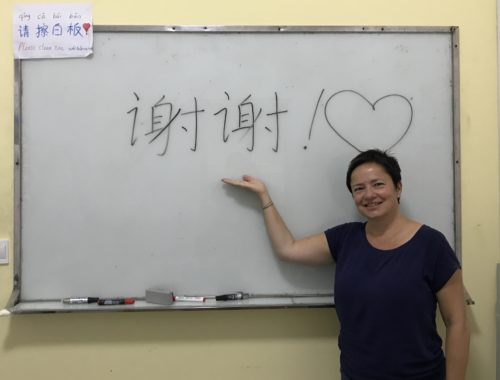 qǐng cā bái bǎn
请擦白板
Please clean the whiteboard
谢谢！